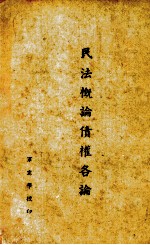 民法概論債權各論
軍需學校印